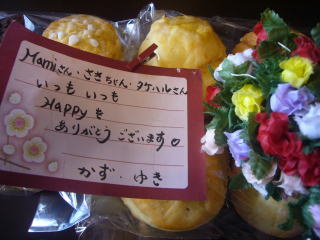 Mamiさん・さきちゃん・タケハルさん
いつも いつも
Happyを
ありがとう ございます♡
かず・ゆき